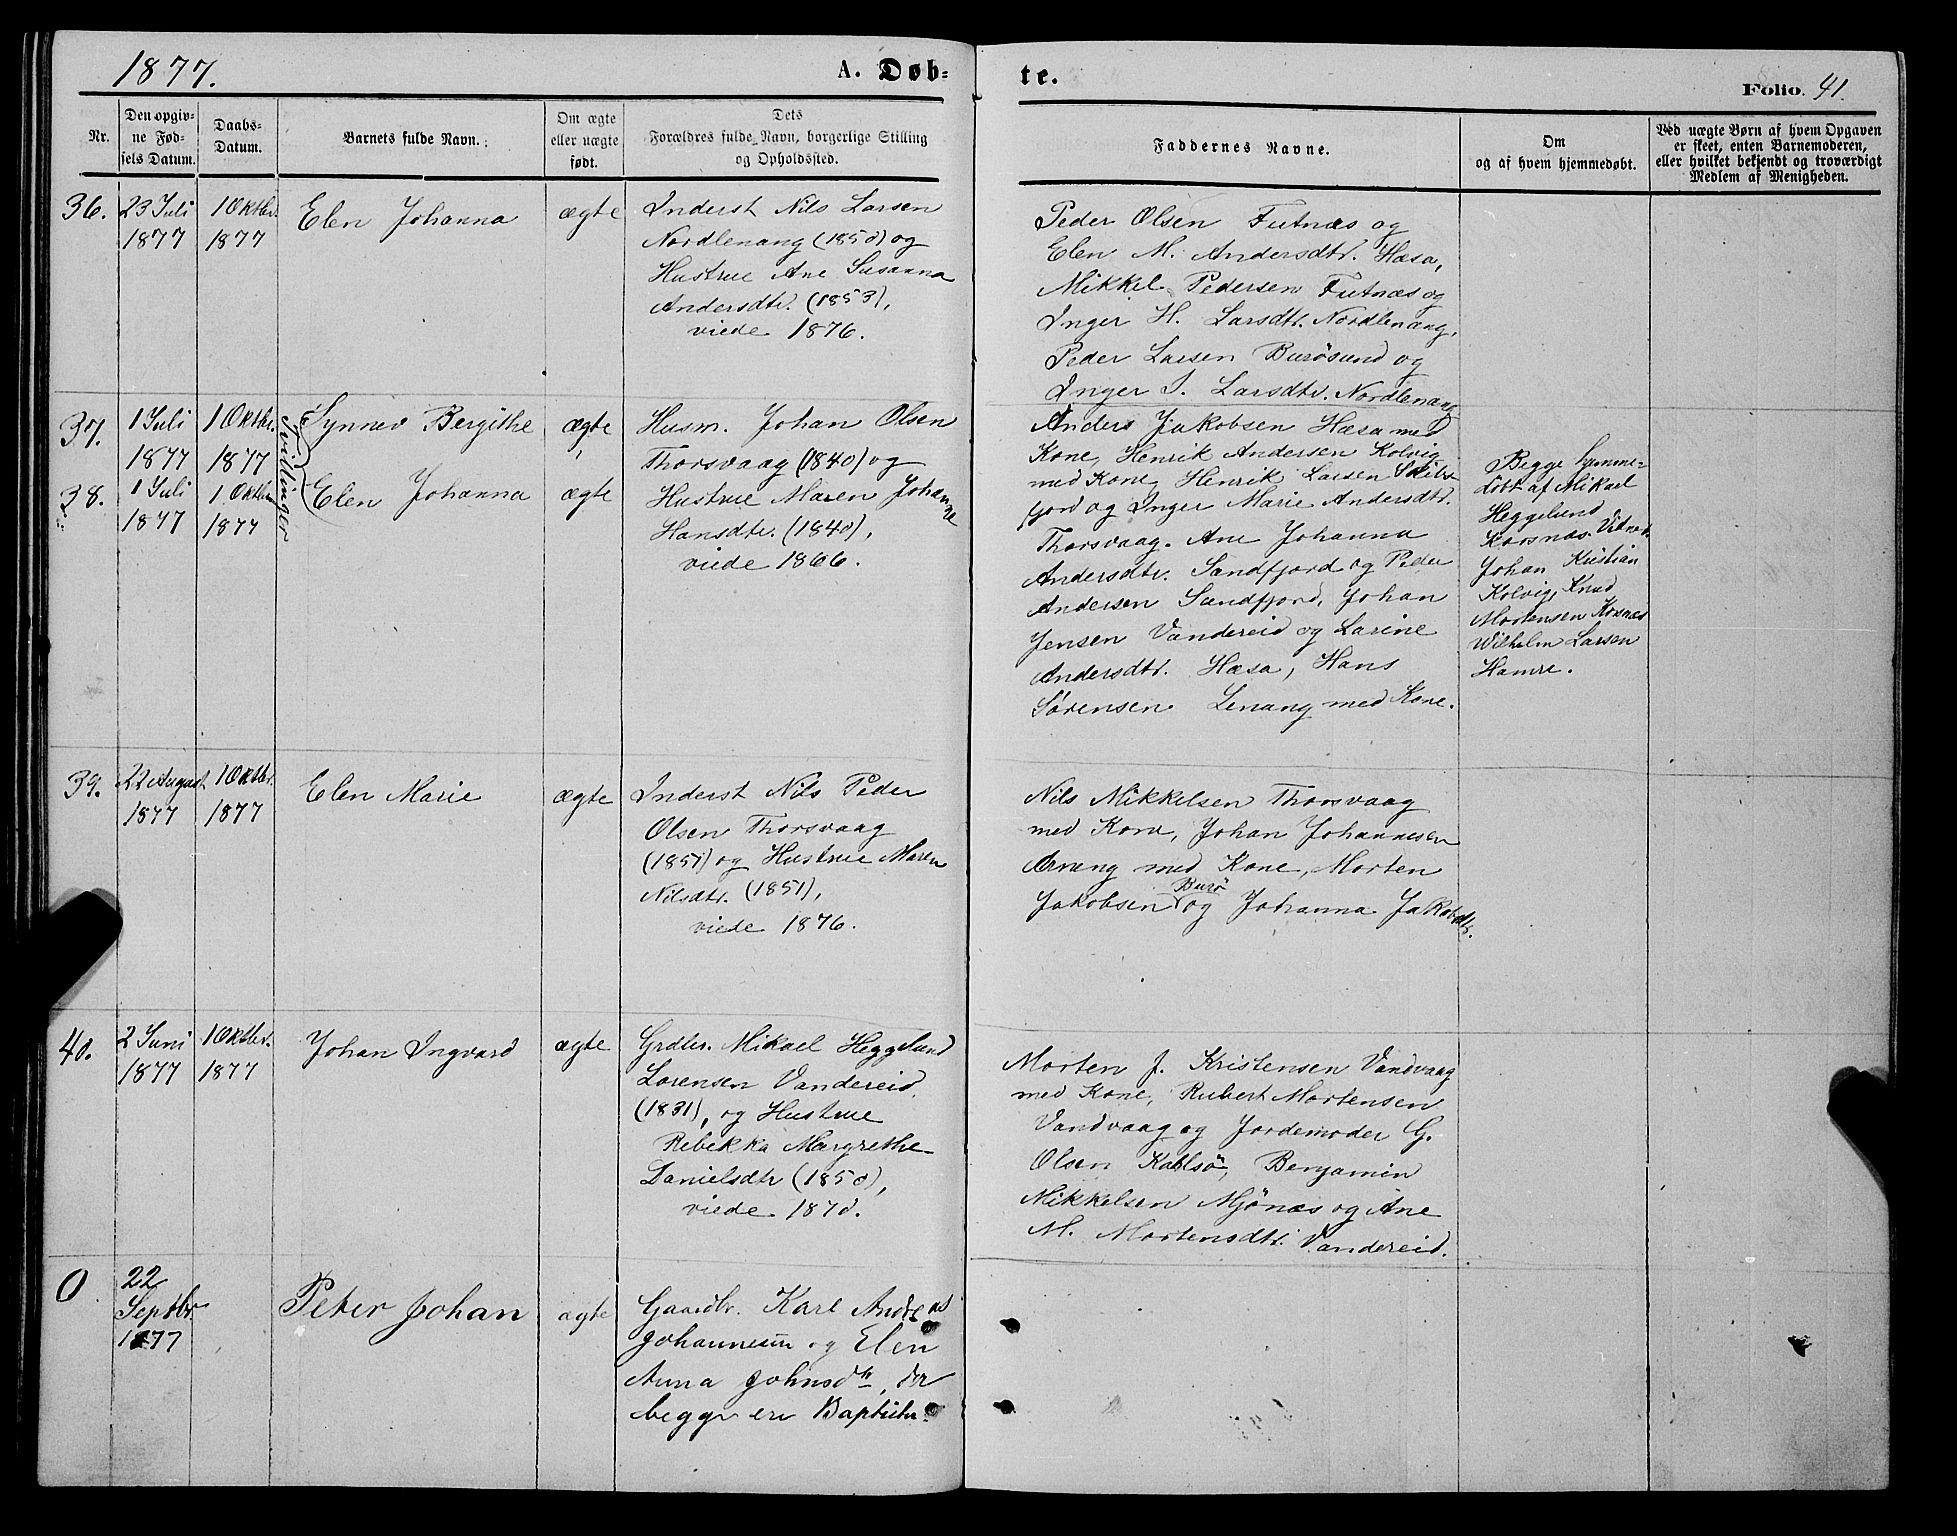 1877.
A. Døb-
te.
Folio. 41.
Nr.
Den opgiv-
ne Fød-
sels Datum.
Daabs-
Datum.
Barnets fulde Navn.
Om ægte
eller uægte
født.
Dets
Forældres fulde Navn, borgerlige Stilling
og Opholdssted.
Faddernes Navne.
Om
og af hvem hjemmedøbt.
Ved uægte Børn af hvem Opgaven
er skeet, enten Barnemoderen,
eller hvilket bekjendt og troværdigt
Medlem af Menigheden.
36.
23 Juli
1877
1 Oktbr.
1877
Elen Johanna
ægte
Inderst Nils Larsen
Nordlenang (1850) og
Hustrue Ane Susanna
Andersdtr. (1853),
viede 1876.
Peder Olsen Futnæs og
Elen M. Andersdtr. Hæsa,
Mikkel Pedersen Futnæs og
Inger H. Larsdtr. Nordlenang,
Peder Larsen Burösund og
Inger S. Larsdtr. Nordlenang
37.
1 Juli
1877
1 Oktbr.
1877
Tvillinger
Synnev Bergithe
ægte
38.
1 Juli
1877
1 Oktbr
1877
Elen Johanna
ægte
Husm. Johan Olsen
Thorsvaag (1840) og
Hustrue Maren Johanne
Hansdtr. (1840),
viede 1866.
Anders Jakobsen Hæsa med
Kone, Henrik Andersen Kolvig
med Kone, Henrik Larsen
fjord og Inger Marie Andersdtr.
Thorsvaag. Ane Johanna
Andersdtr. Sandfjord og Peder
Andersen Sandfjord, Johan
Jensen Vandereid og Larine
Andersdtr. Hæsa, Hans
Sörensen Lenang med Kone.
Begge hjemme-
döbt af Mikael
Heggelund
Korsnæs. Vidner.
Johan Kristian
Kolvig, Knud
Mortensen Korsnæs
Wilhelm Larsen
Hamre.
39.
22 August
1877
1 Oktbr.
1877
Elen Marie
ægte
Inderst Nils Peder
Olsen Thorsvaag
(1851) og Hustrue Maren
Nilsdtr. (1851),
viede 1876.
Nils Mikkelsen Thorsvaag
med Kone, Johan Johannesen
med Kone, Morten
Jakobsen Burö og Johanna Jakobsdtr.
40.
2 Juni
1877
1 Oktbr.
1877
Johan Ingvard
ægte
Grdbr. Mikael Heggelund
Lorensen Vandereid
(1831), og Hustrue
Rebekka Margrethe
Danielsdtr (1850),
viede 1870.
Morten J. Kristensen Vandvaag
med Kone, Rubert Mortensen
Vandvaag og Jordemoder G.
Olsen Karlsö, Benjamin
Mikkelsen Mjönæs og Ane
M. Mortensdtr. Vandereid.
0
22
Septbr
1877
Peter Johan
ægte
Gaardbr. Karl Andreas
Johannesen og Elen
Anna Johnsdtr, der
begge ere Baptister.